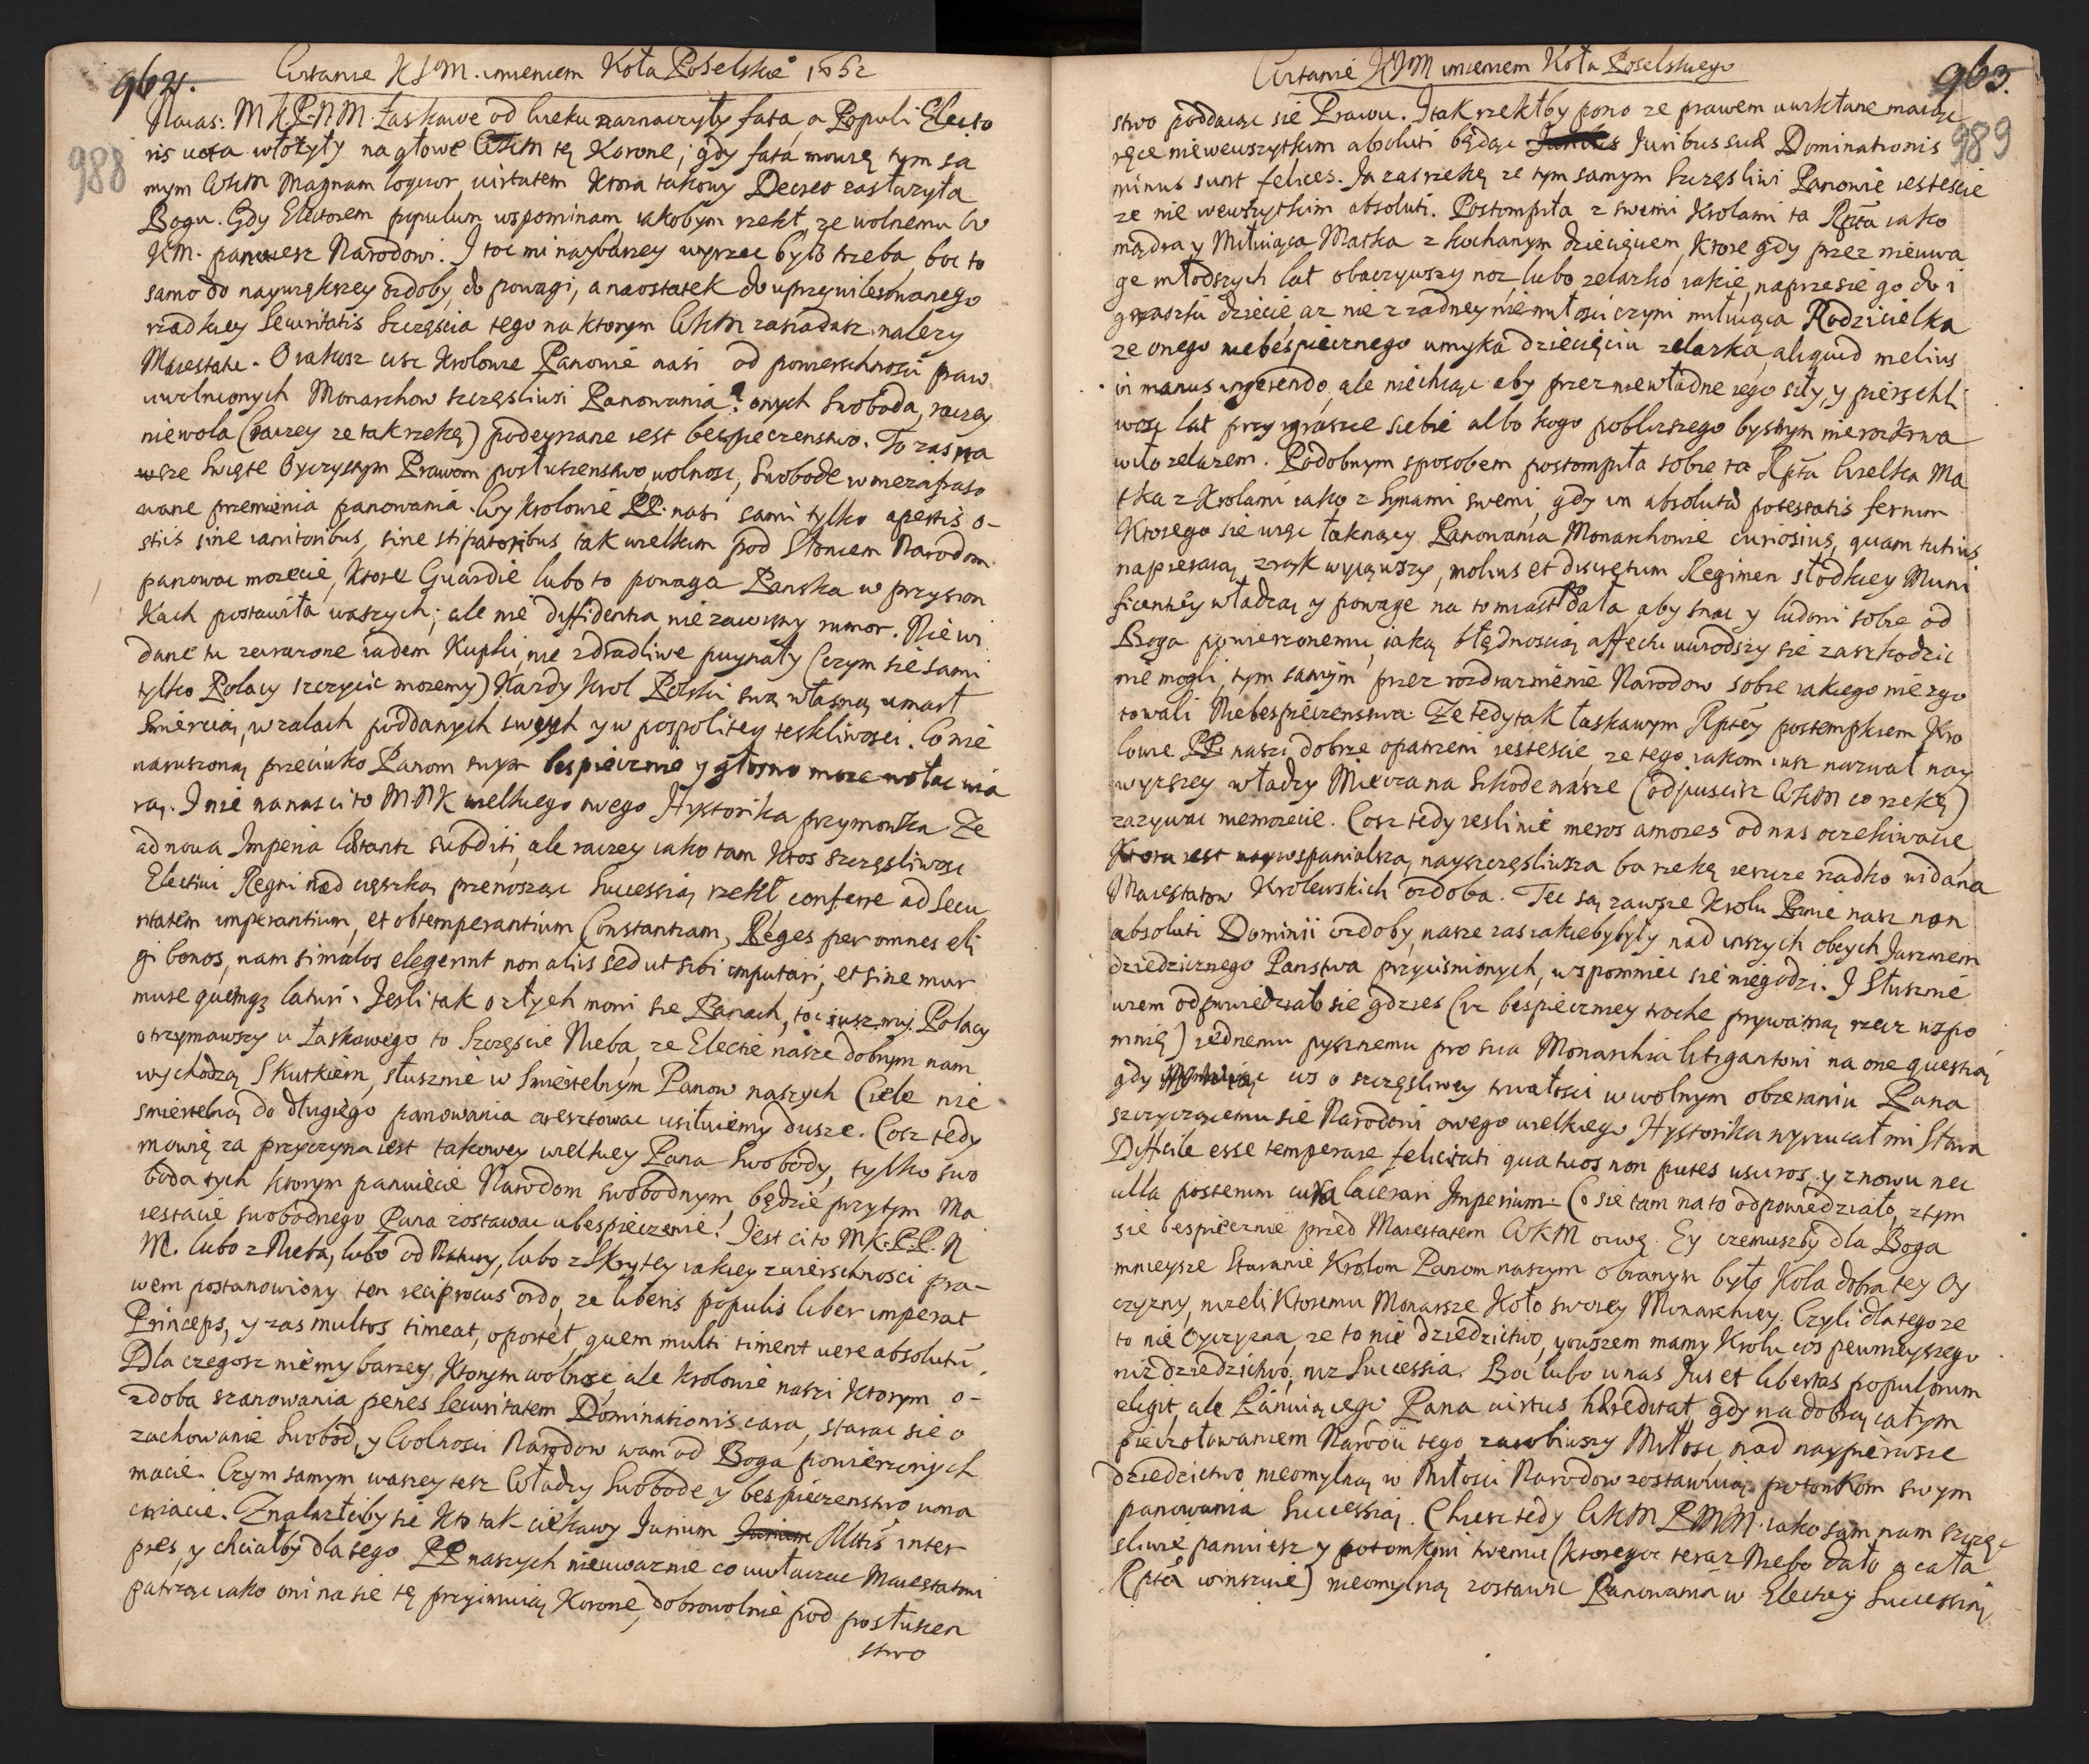 962.
988
Witanie KJM. imieniem Koła Poselskie° 1652
Naias: M K P.N M. Łaskawe od wieku naznaczyły fata, a Populi Electo
ris vota włożyły na głowe WKM tę Korone; gdy fata mowię tym sa
mym WKM Magnam loquor virtutem Ktora takowy Decret zasłużyła
Bogu. Gdy Electorem populum wspominam, iakobym rzekł, ze wolnemu W
KM. panuiesz Narodowi. I toc mi naybarzey wyrzec było trzeba, boc to
samo do naywiększey ozdoby, do powagi, a naostatek do uprzywileiowanego
rzadkiey Securitatis Szczęscia tego na ktorym WKM zasiadasz nalezy
Maiestatu. O iakosz cisz Krolowie Panowie nasi od powierzchnosci praw
uwolnionych Monarchow szczęsliwsi Panowania? onych Swoboda, raczey
niewola (raczey ze tak rzekę) podeyrzane iest bespieczenstwo. To zas wa
sze Swięte Oyczystym Prawom posłuszenstwo, wolnosc, Swobode w niezafraso
wane przemienia panowania. Wy Krolowie PP. nasi sami tylko apertis o-
stiis sine ianitoribus, sine stipatoribus tak wielkim pod Słoncem Narodom
panowac mozecie, Ktore Guardie lubo to powaga Panska w przysion
kach postawiła waszych; ale nie diffidentia, nie zawisny rumor. Nie wi
dane tu zarazone iadem Kupki, nie zdradliwe puynały (czym sie sami
tylko Polacy szczycic mozemy) Kazdy Krol Polski swą własną umarł
Smiercią, w zalach poddanych swoych y w pospolitey teskliwosci. Co nie
naruszoną przeciwko Panom swym bespiecznie y głosno moze wołac wia
rą. I nie na nas ci to M.N.K wielkiego owego Hystorika przymowka Ze
ad noua Imperia lætantr subditi, ale raczey iako tam Ktos szczęsliwosc
Electiui Regni nad cięszką przenosząc Successią rzekł conferre ad secu
ritatem imperantium, et obtemperantium Constantiam, Reges per omnes eli
gi bonos, nam si malos elegerint non aliis sed ut sibi imputari, et sine mur
mure quemqz laturi. Jesli tak o złych mowi sie Panach, toc iusz my Polacy
otrzymawszy u Łaskawego to Szczęscie Nieba, ze Electie nasze dobrym nam
wychodzą Skutkiem, słusznie w Smiertelnym Panow naszych Ciele nie
smiertelną do długiego panowania aresztowac usiłuiemy dusze. Cosz tedy
mowię za przyczyna iest takowey wielkiey Pana Swobody, tylko swo
boda tych ktorym panuiecie Narodom swobodnym, będzie przytym Ma
iestacie swobodnego Pana zostawac ubespieczenie! Jest ci to M.K.P.P.N
M. lubo z Nieba, lubo od Natury, lubo z Skrytey iakiey zwierschnosci pra-
wem postanowiony ten reciprocus ordo, ze liberis populis liber imperat
Princeps, y zas multos timeat, oportet, quem multi timent vere absolutū
Dla czegosz nie my barzey, Ktorym wolnosc, ale Krolowie naszi Ktorym o-
zdoba szanowania penes Securitatem Dominationis cara, starac sie o
zachowanie Swobod, y Wolnosci Narodow wam od Boga powierzonych
macie. Czym samym waszey tesz Władzy Swobode y bespieczenstwo uma
cniacie. Znalazłciby sie Kto tak ciekawy Jurium Altus inter
pres, y chciałby dla tego PP naszych nieuwaznie co uwłaczac Maiestatowi
patrząc iako oni na sie tę przyimuią Korone, dobrowolnie pod posłuszen
stwo
963.
989
Witanie KJM imieniem Koła Poselskiego
stwo poddaiąc sie Prawu. I tak rzekłby pono ze prawem uwikłane maiąc
ręce nie we wszytkim absoluti będąc Juribus suæ Dominationis
minus sunt felices. Ja zas rzekę ze tym samym Szczęsliwi Panowie iestescie
ze nie we wszytkim absoluti. Postompiła z swemi Krolami ta Rpta iako
mądra y Miłuiąca Matka z kochanym dziecięciem, Ktore gdy przez nieuwa
ge młodszych lat obaczywszy noz lubo zelazko iakie, naprzesie go do i
graszki dziecie, az nie z zadney nie miłosci czyni miłuiąca Rodzicielka
ze onego niebespiecznego umyka dziecięciu zelazka, aliquid melius
in manus ingerendo, ale niechcąc aby przez niewładne iego siły, y pierschli
wosc lat przy igrasce siebie albo kogo poblizszego bystrym nie rozkrwa
wiło zelazem. Podobnym sposobem postompiła sobie ta Rpta Wielka Ma
tka z Krolami iako z Synami swemi, gdy im absolutæ potestatis ferrum
Ktorego sie więc łaknący Panowania Monarchowie curiosius, quam tutius
napieraią z rąk wyiąwszy, molius et discretum Regimen słodkiey Muni
ficentiey władzą y powage na to miast dała, aby snac y ludowi sobie od
Boga powierzonemu, iaką błędnoscią affectu uwiodszy sie zaszkodzic
nie mogli, tym samym przez rozdraznienie Narodow sobie iakiego nie zgo
towali Niebespieczenstwa. Ze tedy tak łaskawym Rptey postempkiem Kro
lowie PP. naszi dobrze opatrzeni iestescie, ze tego iakom iusz nazwał nay
wyzszey władzy Miecza na Szkode nasze (odpuscisz WKM co rzekę)
zazywac niemozecie. Cosz tedy iesli nie meros amores od nas oczekiwacie
Ktora iest naywspanialsza, nayszczęsliwsza ba rzekę iescze rzadko widana
Maiestatow Krolewskich ozdoba. Tec są zawsze Krolu Panie nasz non
absoluti Dominii ozdoby, nasze zas iakieby były nad inszych obcych Jarzmem
dziedzicznego Panstwa przycisnionych, wspomniec sie niegodzi. I Słusznie
wiem odpowiedziało sie gdzies (iz bespieczniey troche prywatną rzecz wspo
mnię) iednemu pysznemu pro sua Monarchia litigantowi na one questią
gdy cos o szczęsliwey trwałosci w wolnym obieraniu Pana
szczyczącemu sie Narodowi owego wielkiego Hystorika wyrzucał mi Stara
Difficile esse temperare felicitati qua tuos non putes usuros, y znowu nec
ulla posterum cura lacerari Imperium. Co sie tam na to odpowiedziało, z tym
sie bespiecznie przed Maiestatem WKM ozwę. Ey czemuszby dla Boga
mnieysze Staranie Krolom Panom naszym obranym było Koła dobra tey Oy
czyzny, nizeli Ktoremu Monarsze Koło swoiey Monarchiey. Czyli dla tego ze
to nie Oyczyzna, ze to nie dziedzictwo, y owszem mamy Krolu cos pewnieyszego
niz dziedzictwo, niz Successia. Boc lubo u nas Jus et libertas populorum
eligit, ale Panuiącego Pana virtus hæreditat, gdy na dobrą całym
pieczołowaniem Narodu tego zarobiwszy Miłosc, nad naypierwsze
dziedzictwo nieomylną w Miłosci Narodow zostawuią potomkom swym
panowania Successią. Chcesz tedy WKM P.M.M. iako sam nam szczę
sliwie panuiesz y potomkowi twemu (ktoregoc teraz Niebo dało a cała
Rpta winszuie) nieomylną zostawic Panowania w Electiey Successią